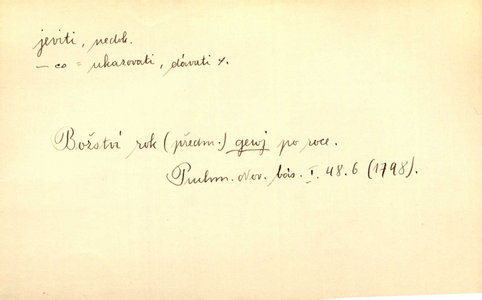 jeviti, nedok.
— co = ukazovati, dávati
Božství rok (předm.) gewj po roce.
Puchm. Nov. bás. I. 48. 6 (1798).